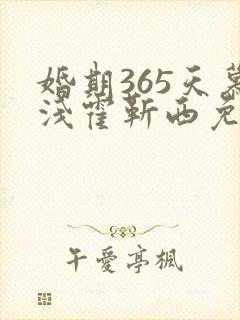 婚期365天慕
浅霍靳西免
午爱亭枫